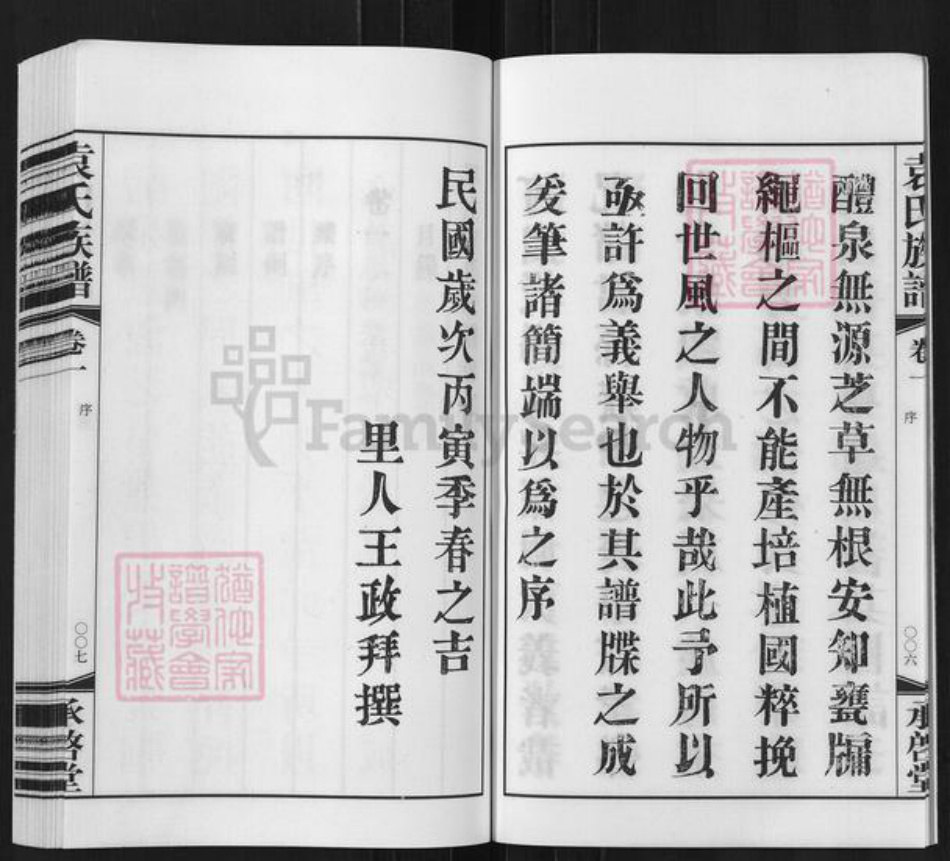 袁氏族譜
卷一
序
〇〇六
承啓堂
醴泉無源芝草無根安知甕牖
繩樞之間不能產培植國粹挽
回世風之人物乎哉此予所以
亟許爲義舉也於其譜牒之成
爰筆諸簡端以爲之序
民國歲次丙寅季春之吉
里人王政拜撰
袁氏族譜
卷一
序
〇〇七
承啓堂
猶他家
譜學會
收藏
猶他家
譜學會
收藏
FamilySearch